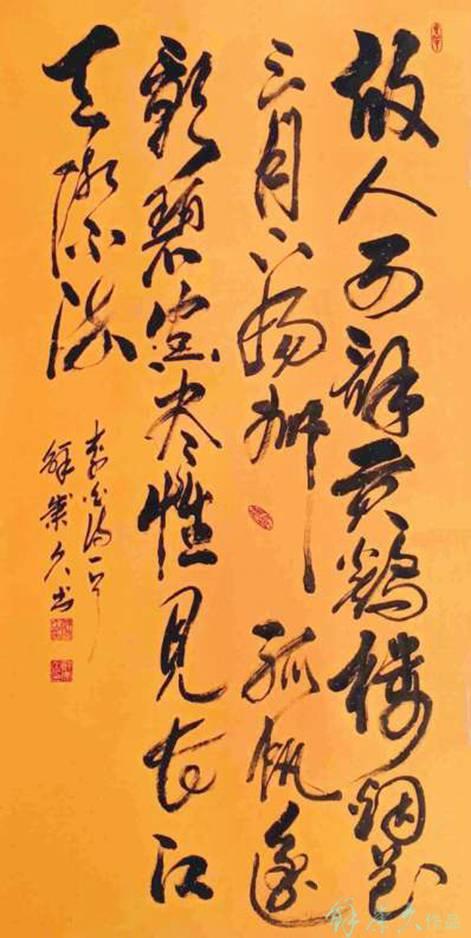 故人西辞黄鹤楼烟花
三月下扬州孤帆远
影碧空尽惟见长江
天际流
李白诗一首
作品